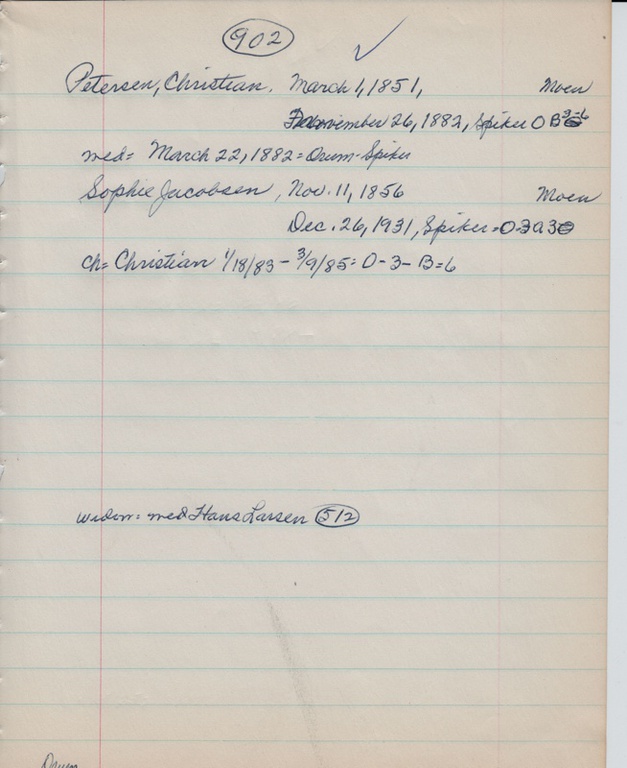 902 ✓
Petersen, Christian. March 1, 1851, Moen
November 26, 1882, Spiker O B 3=6
med= March 22, 1882= Orum-Spiker
Sophie Jacobsen, Nov. 11, 1856 Moen
Dec. 26, 1931, Spiker=O-3 A 3
ch= Christian 1/18/83 - 3/9/85= O-3- B=6
widow= med Hans Larsen 512
Orum